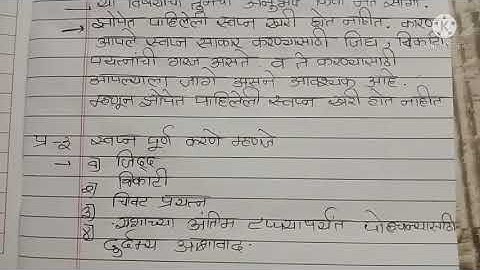 → या विषयीचा तुमचा अनुभव किंवा मत सांगा.
→ झोपेत पाहिलेली स्वप्न खरी होत नाहीत. कारण
आपले स्वप्न साकार करण्यासाठी जिद्द, चिकाटी
प्रयत्नांची गरज असते. व ते करण्यासाठी
आपल्याला जागे असने आवश्यक आहे.
म्हणून झोपेत पाहिलेली स्वप्न खरी होत नाहीत
प्र-२ स्वप्न पूर्ण करणे म्हणजे
→ १) जिद्द
२) चिकाटी
३) चिवट प्रयत्न
४) यशाच्या अंतिम टप्प्यापर्यंत पोहचण्यासाठी
दुर्दम्य आशावाद.